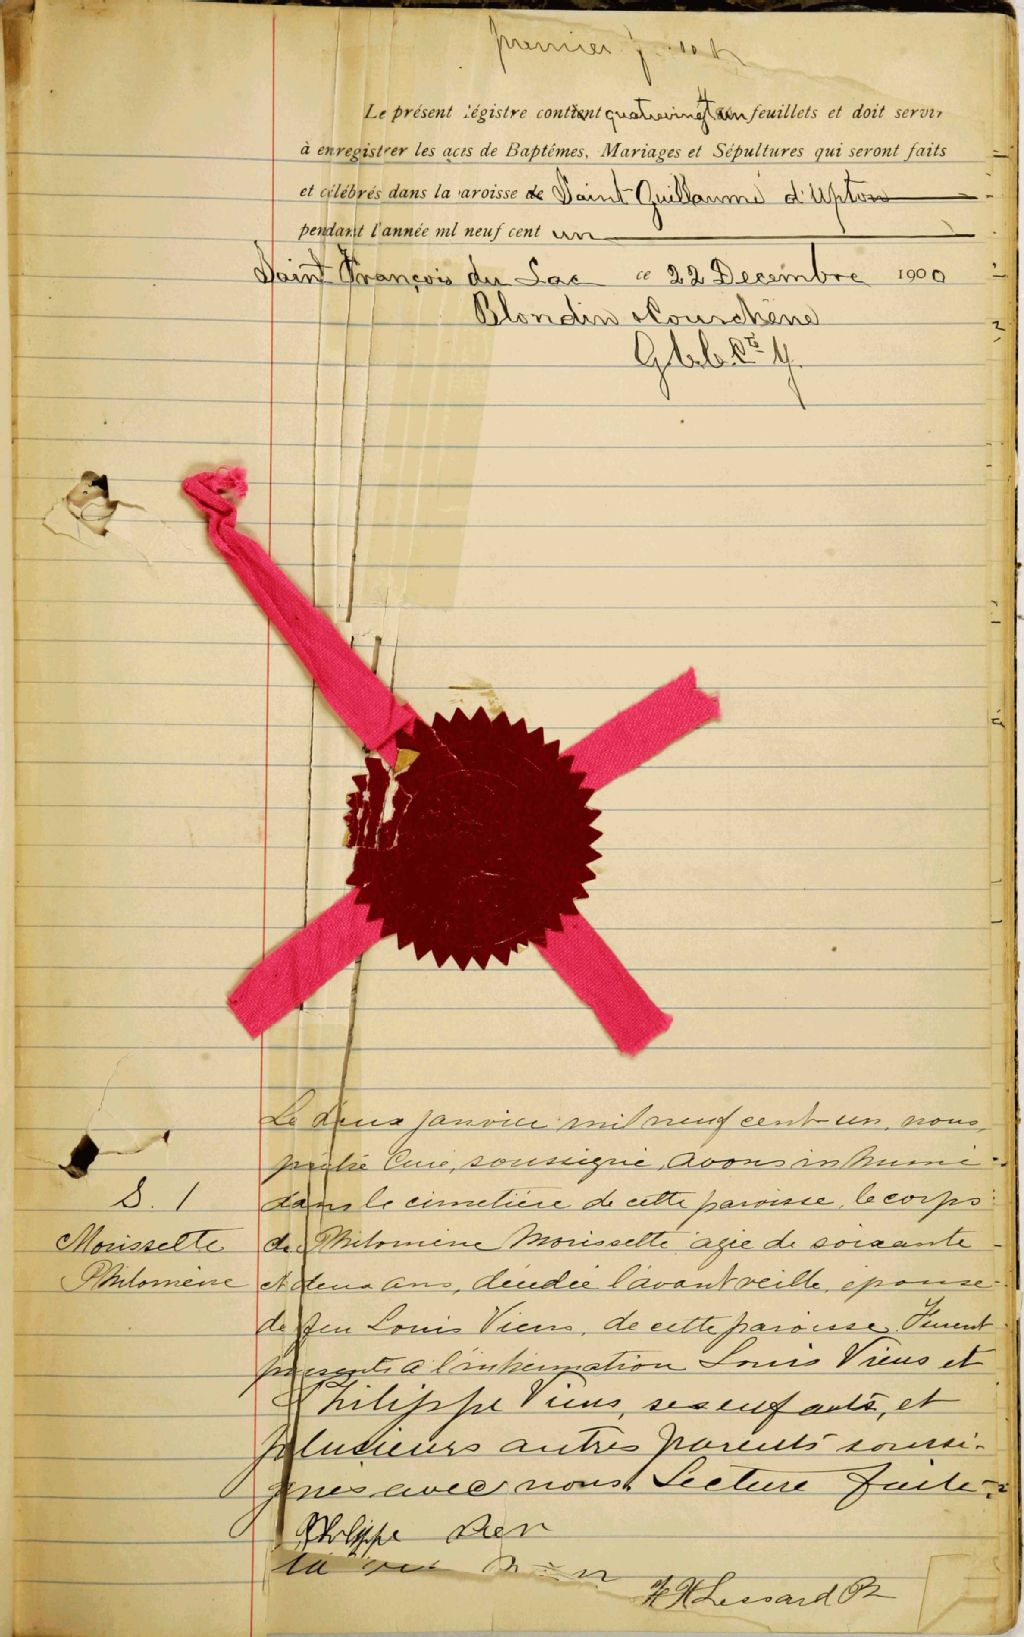 premier
Le présent régistre contient quatrevingt un feuillets et doit servir
à enregistrer les actes de Baptêmes, Mariages et Sépultures qui seront faits
et célébrés dans la paroisse de Saint Guillaume d'Upton
pendant l'année mil neuf cent un
Saint François du Lac ce 22 Decembre 1900
Blondin & Courchêne
G.C.C.S.
Le deux janvier mil neuf cent un, nous,
prêtre Curé, soussigné, avons inhumé
S. 1
dans le cimetière de cette paroisse, le corps
Morissette
de Philomène Morissette agée de soixante
Philomène
et deux ans, décédée l'avant veille, épouse
de feu Louis Viens, de cette paroisse. Furent
presents a l'inhumation Louis Viens et
Philippe Viens, ses enfants, et
plusieurs autres parents soussi-
gnés avec nous. Lecture faite.
Philippe
F X Lessard Ptr